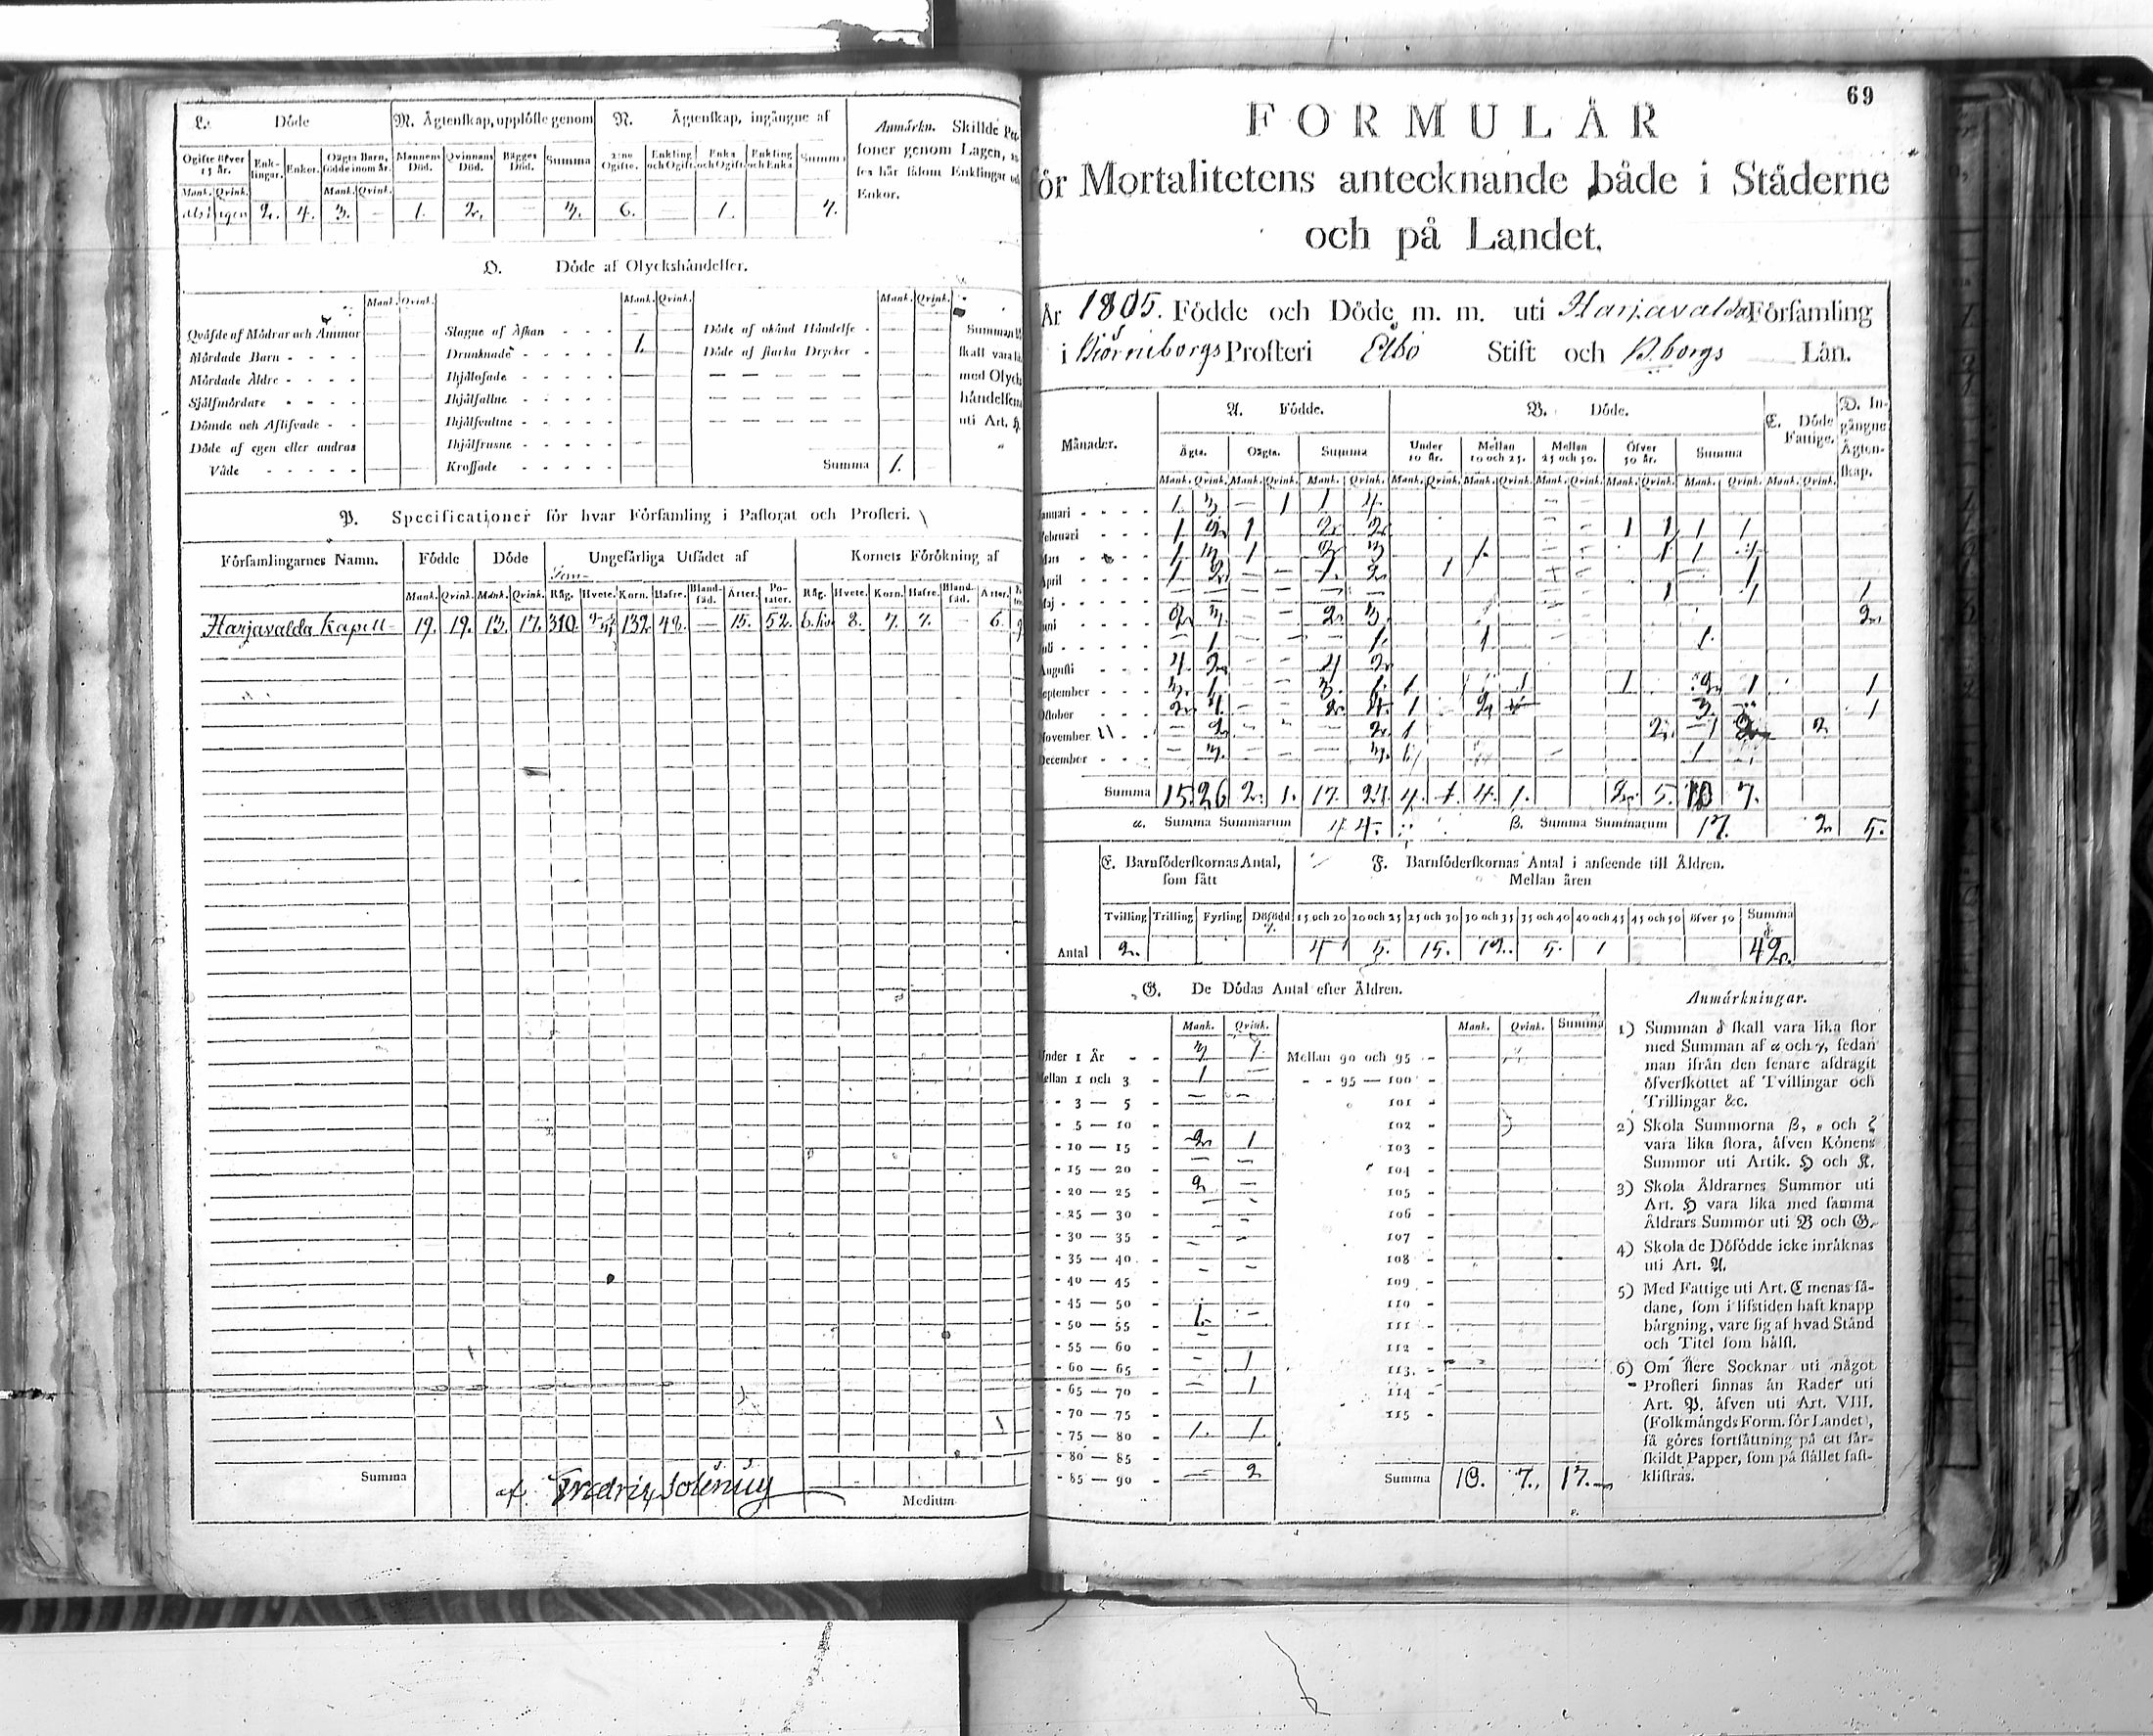 L. Döde
M. Ägtenskap, upplöste genom
N. Ägtenskap, ingångne af
Anmärkn. Skillde Per-
soner genom Lagen,
ses här såsom Enklingar och
Enkor.
Ogifte öfver 15 år. Enk-lingar. Enkor. Oägta Barn, födde inom år. Mannens Död. Qvinnans Död. Bägges Död. Summa 2:ne Ogifte. Enkling och Ogift. Enka och Ogift. Enkling och Enka Summa
Mank. Qvink. Mank. Qvink.
2. 4. 3. — 1. 2. 3. 6. 1. 7.
O. Döde af Olyckshändelser.
Mank. Qvink. Mank. Qvink. Mank. Qvink.
Qväfde af Mödrar och Ammor
Mördade Barn - - - -
Mördade Äldre - - - -
Självmördare - - - -
Dömde och Aflifvade - -
Döde af egen eller andras
Våde - - - - -
Slagne af Åskan - - -
Drunknade - - - - - 1.
Ihjälfrusne - - - - -
Krossade - - - - -
Döde af okänd Händelse -
Döde af starka Drycker -
Summa 1.
skall vara
med Olycks
händelsern
uti Art.
P. Specificationer för hvar Församling i Pastorat och Prosteri.
Församlingarnes Namn. Födde Döde Ungefärliga Utsädet af Kornets Förökning af
Mank. Qvink. Mank. Qvink. Råg. Hvete. Korn. Hafre. Bland-säd. Ärter. Po-tater. Råg. Hvete. Korn. Hafre. Bland-säd. Ärter.
Harjavalda Kapell- 19. 19. 13. 17. 310. 132 48. — 15. 52. 8. 7. 7. — 6.
Summa
af Fredrik Solenius
Medium
69
FORMULÄR
för Mortalitetens antecknande både i Städerne
och på Landet.
År 1805. Födde och Döde, m. m. uti Harjavalda Församling
i Björneborgs Prosteri Åbo Stift och B.borgs Län.
Månader. A. Födde. B. Döde. C. Döde Fattige. D. In-gångne Ägten-skap.
Ägta. Oägta. Summa Under 10 år. Mellan 10 och 25. Mellan 25 och 50. Öfver 50 år. Summa
Mank. Qvink. Mank. Qvink. Mank. Qvink. Mank. Qvink. Mank. Qvink. Mank. Qvink. Mank. Qvink. Mank. Qvink. Mank. Qvink.
Januari - - - - 1. 3 — 1 1 4.
Februari - - - 1 2 1 2 2 1 1 1 1
Mars - - - 1 3 1 2 3 1. 1 1
April - - - - 1 2 — — 1. 2 1 1
Maj - - - - - — — — — — — 1 1 1
Juni - - - - 2 3 — — 2 3 2
Juli - - - - - — 1 — — 1. 1 1.
Augusti - - - 4. 2 — — 4 2
September - - - 3. 1 3. 1. 1 1 1 2 1 1
Oktober - - - 2 4. — — 2 4. 1 2 3 1
November - - — 2 — — — 2. 1 2. — 1 2
December - - - — 3. — — — 3. 1
Summa 15. 26 2. 1. 17. 27 4. 1. 4. 1. 2. 5. 10 7.
α. Summa Summarum 44. β. Summa Summarum 17. 2 5.
E. Barnföderskornas Antal, som fått
F. Barnföderskornas Antal i anseende till Åldren.
Mellan åren
Tvilling Trilling Fyrling Dödfödd 15 och 20 20 och 25 25 och 30 30 och 35 35 och 40 40 och 45 45 och 50 öfver 50 Summa
Antal 2. 4 5. 15. 12. 5. 1 42.
G. De Dödas Antal efter Åldren.
Mank. Qvink. Mank. Qvink. Summa
Under 1 År - - 3 1.
Mellan 1 och 3 - 1 —
- 3 — 5 - — —
- 5 — 10 -
- 10 — 15 - 2 1
- 15 — 20 - — —
- 20 — 25 - 2 —
- 25 — 30 -
- 30 — 35 -
- 35 — 40 -
- 40 — 45 -
- 45 — 50 -
- 50 — 55 - 1. —
- 55 — 60 -
- 60 — 65 - — 1
- 65 — 70 - — 1
- 70 — 75 -
- 75 — 80 - 1. 1.
- 80 — 85 -
- 85 — 90 - — 2
Mellan 90 och 95 -
- - 95 — 100 -
101 -
102 -
103 -
104 -
105 -
106 -
107 -
108 -
109 -
110 -
111 -
112 -
113. -
114 -
115 -
Summa 10. 7. 17.
Anmärkningar.
1) Summan δ skall vara lika stor
med Summan af α och γ, sedan
man ifrån den senare afdragit
öfverskottet af Tvillingar och
Trillingar &c.
2) Skola Summorna β, ε och ζ
vara lika stora, äfven Könens
Summor uti Artik. H och K.
3) Skola Åldrarnes Summor uti
Art. H vara lika med samma
Åldrars Summor uti B och G.
4) Skola de Döfödde icke inräknas
uti Art. A.
5) Med Fattige uti Art. C menas så-
dane, som i lifstiden haft knapp
bärgning, vare sig af hvad Stånd
och Titel som hälst.
6) Om flere Socknar uti något
Prosteri finnas än Rader uti
Art. P. äfven uti Art. VIII.
(Folkmängds Form. för Landet),
så göres fortsättning på ett sär-
skildt Papper, som på stället fast-
klistras.